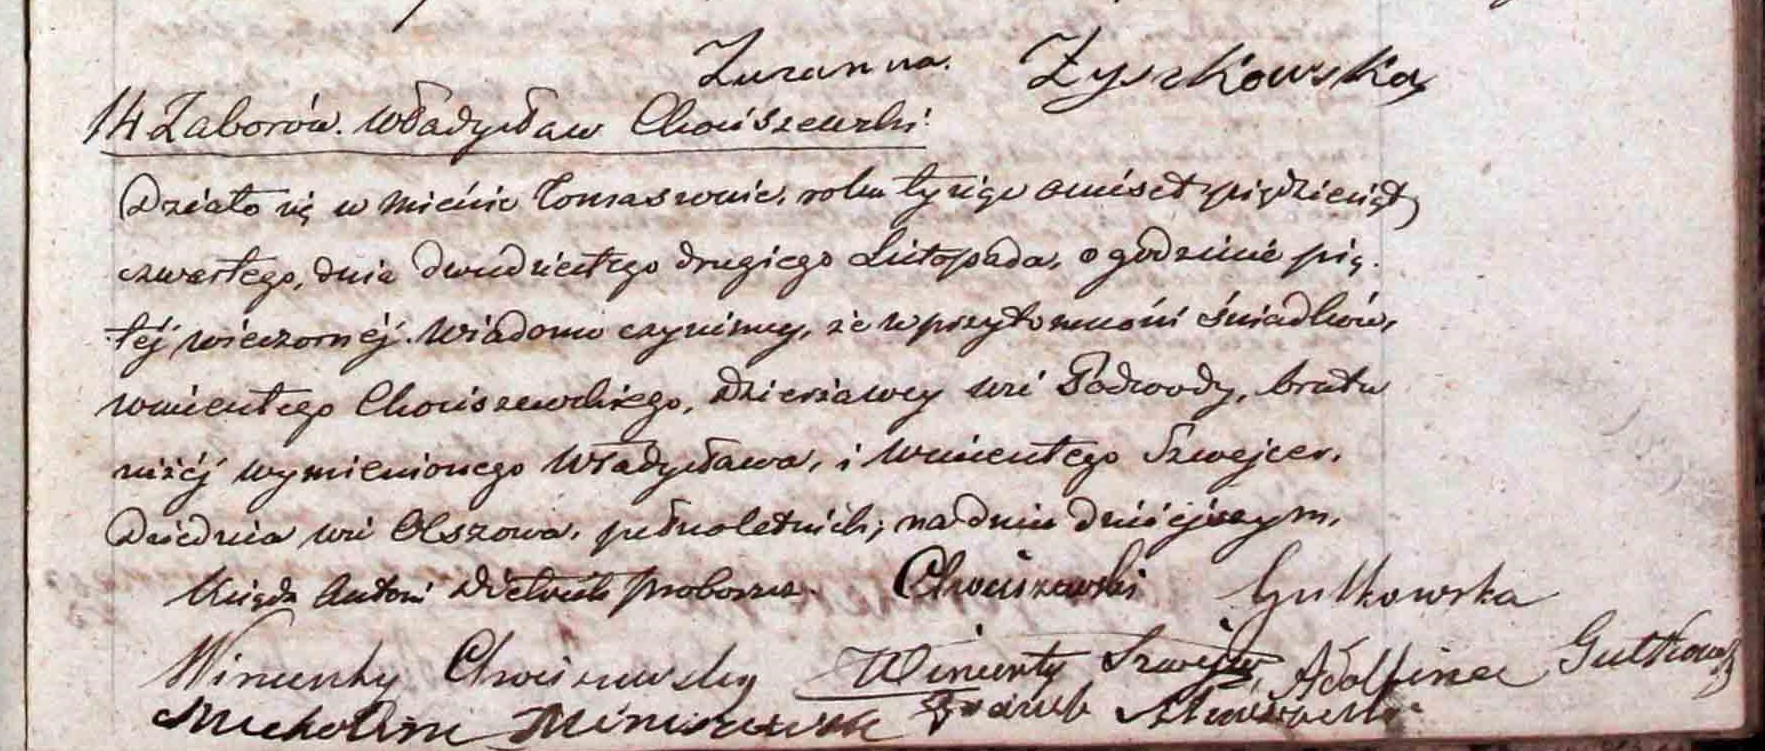 Zuzanna Zyszkowska
14 Zaborów. Władysław Chociszewski
Działo się w mieście Tomaszowie, roku tysiąc ośmset pięćdziesiąt
czwartego, dnia dwudziestego drugiego Listopada, o godzinie pią-
téj wieczornéj. Wiadomo czynimy, że w przytomności świadków,
Wincentego Chociszewskiego, Dzierżawcy wsi Podwody, brata
niżéj wymienionego Władysława, i Wincentego Szwejcer,
Dziedzica wsi Olszowa, pełnoletnich; na dniu dzisiéjszym,
Ksiądz Antoni proboszcz. Chociszewski Gutkowska
Wincenty Chociszewsky Wincenty Szwejcer Adolfina Gutkowska